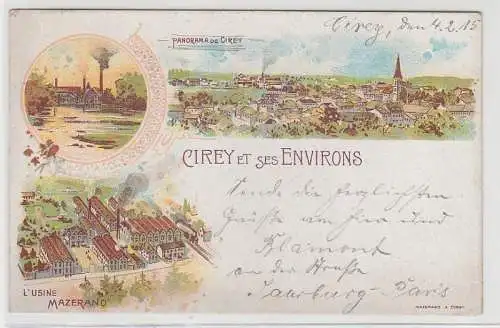 PANORAMA DE CIREY
Cirey, den 4.2.15
CIREY ET SES ENVIRONS
Sende die herzlichsten
Grüße aus hier und
Blamont
an der Straße
Saarburg-Paris
L'USINE
MAZERAND
MAZERAND A CIREY